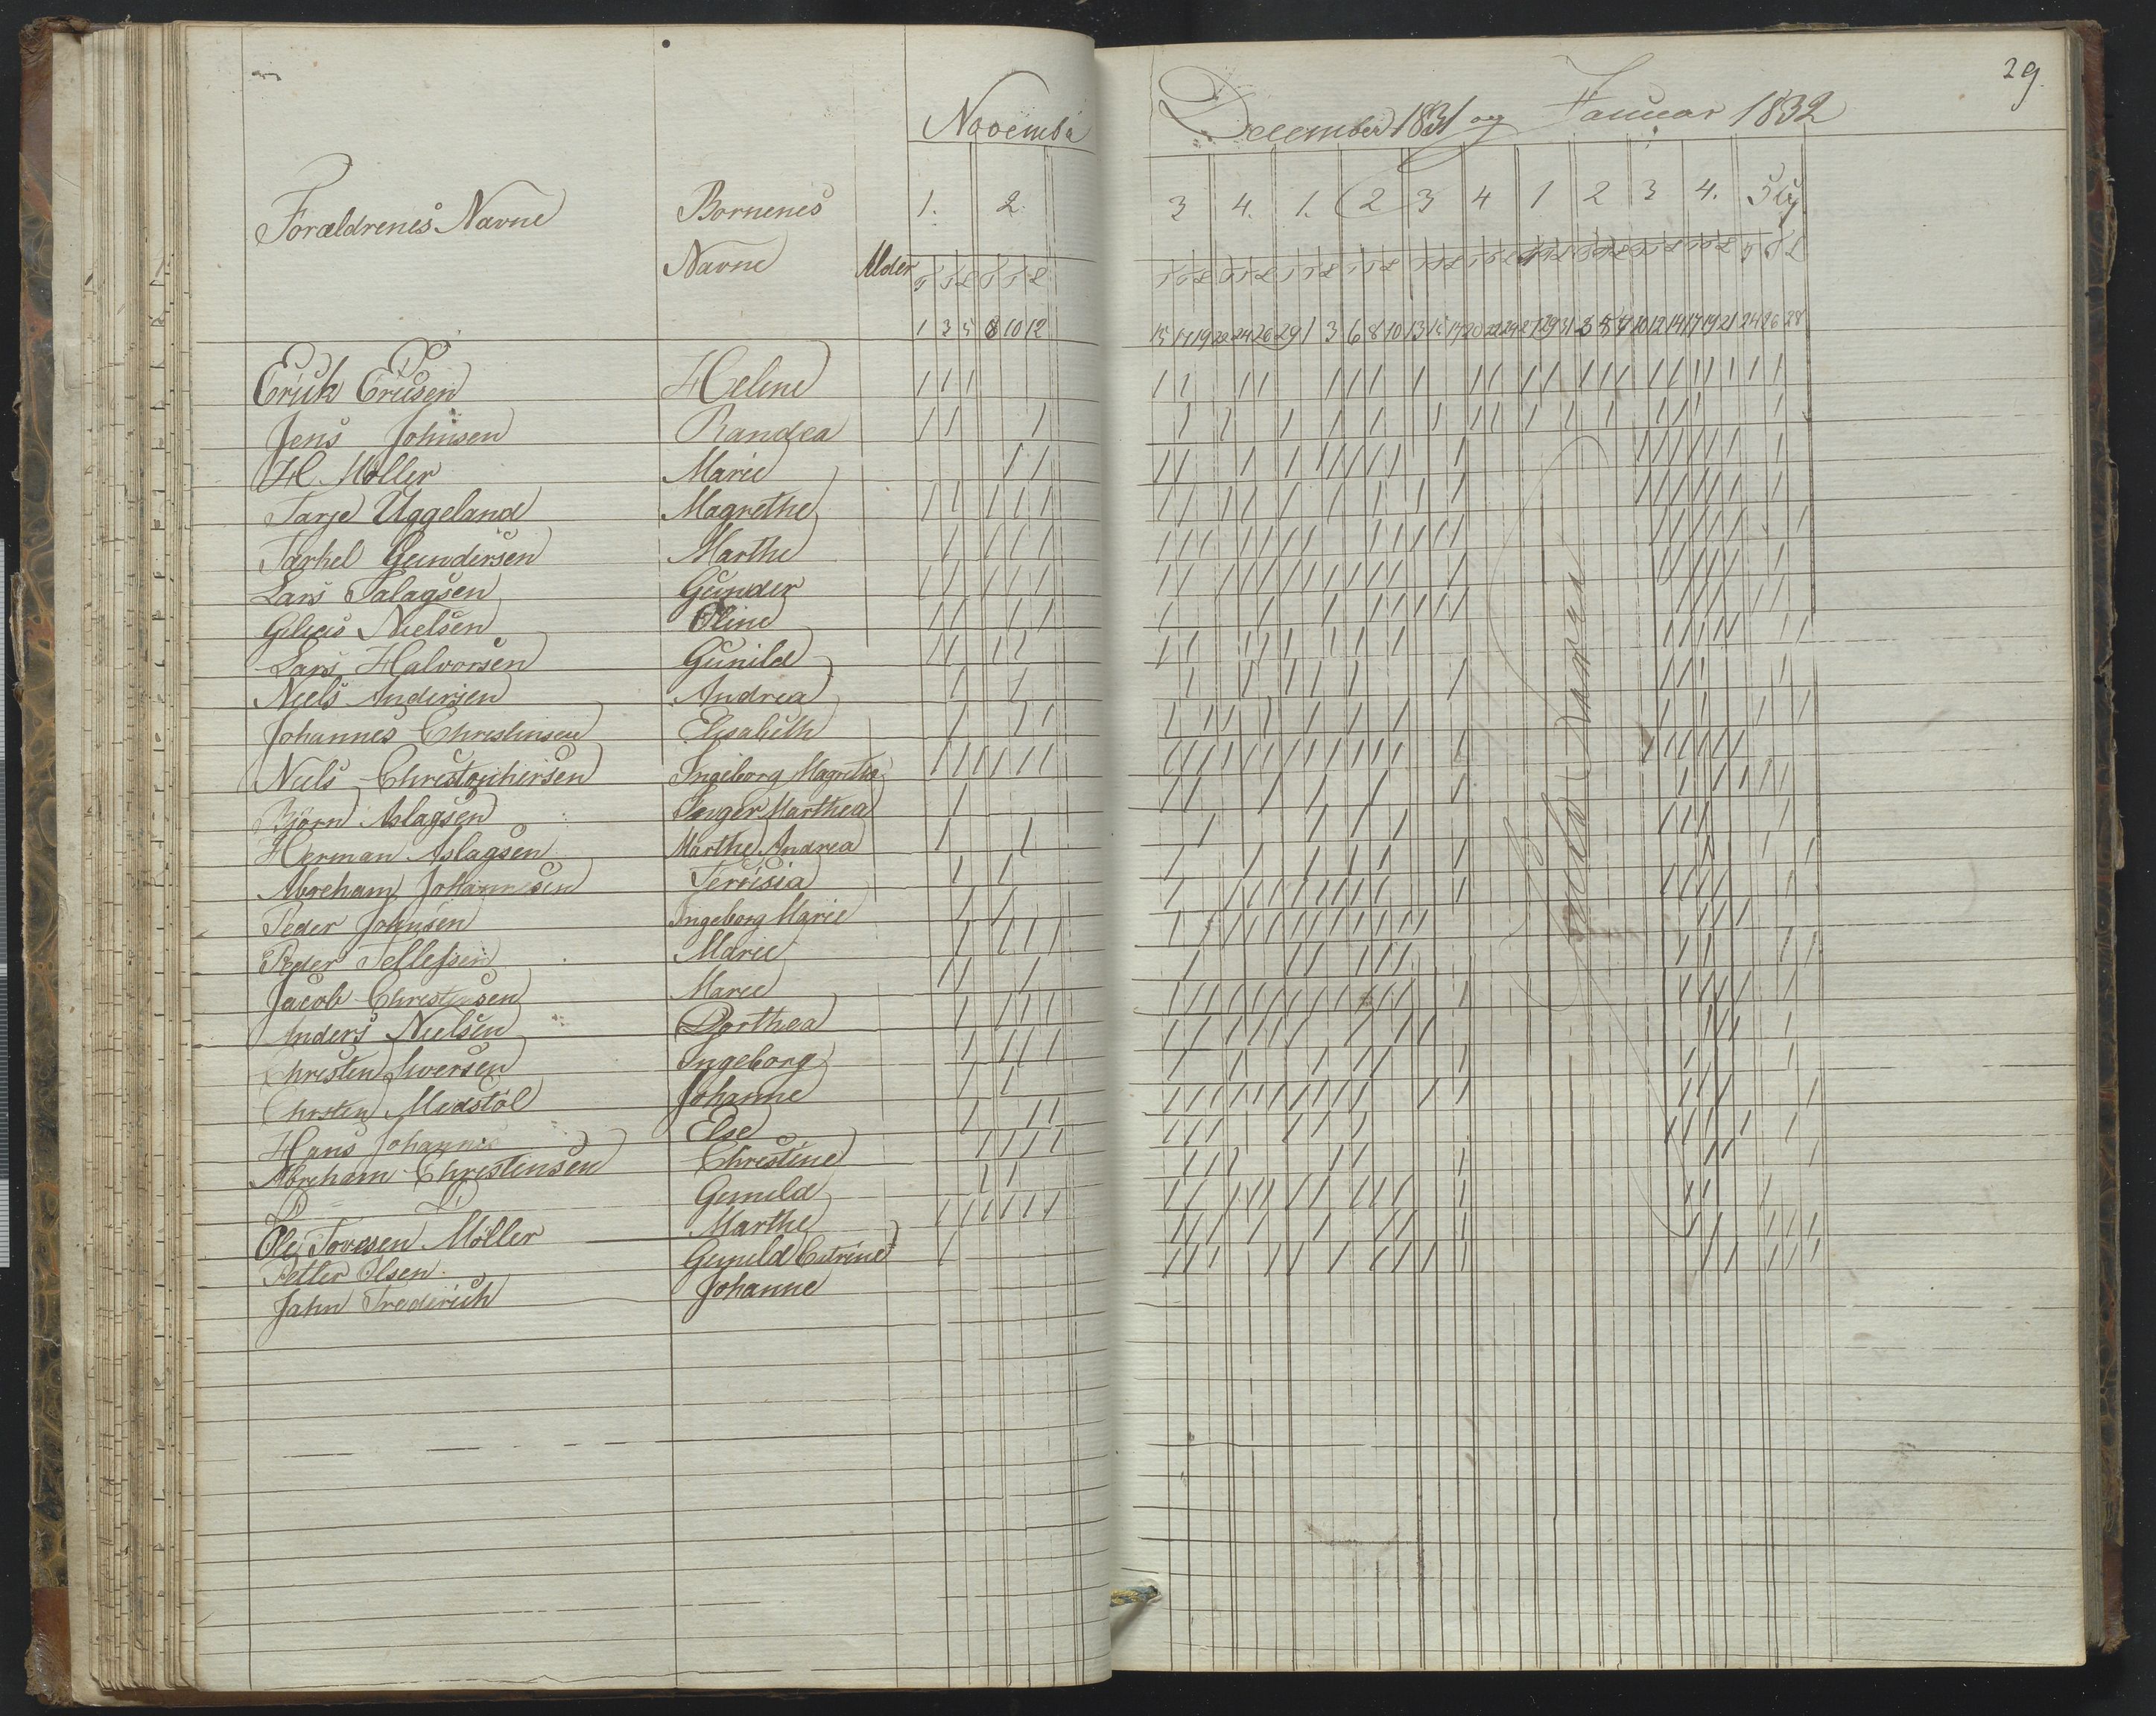 29.
November
December 1831 og Januar 1832
Forældrenes Navne
Bornenes
Navne
Alder
1. 2.
3 4. 1. 2 3 4 1 2 3 4. 5
1 3 5 8 10 12
15 17 19 22 24 26 29 1 3 6 8 10 13 15 17 20 22 24 27 29 31 3 5 7 10 12 14 17 19 21 24 26 28
Erick Ericsen Helene
Jens Johnsen Randea
H. Møller Marie
Tarje Uggeland Magrethe
Tarkel Gundersen Marthe
Lars Salagsen Gunder
Nielsen Oline
Lars Halvorsen Gunild
Niels Andersen Andrea
Johannes Christensen Elisabeth
Niels Christophersen Ingeborg Magrethe
Bjørn Aslagsen Inger Marthea
Herman Aslagsen Marthe Andrea
Abreham Johannesen Terrisia
Peder Johnsen Ingeborg Marie
Peder Tellefsen Marie
Jacob Christensen Marie
Anders Nielsen Dorthea
Christen Iversen Ingeborg
Christen Midstøl Johanne
Hans Johannes Else
Abreham Christensen Christine
Gunild
Ole Tovesen Møller Marthe
Petter Olsen Gunild Catrine
Jahn Frederich Johanne